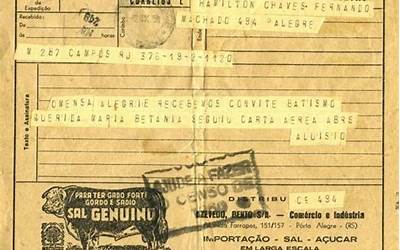 Expedição
Recebido
De
às
horas
CORREIOS E
Carimbo
HAMILTON CHAVES FERNANDO
MACHADO 494 PALEGRE
M 287 CAMPOS RJ 376-19-2-1120
OMENSA ALEGRIE RECEBEMOS CONVITE BATISMO
QUERIDA MARIA BETANIA SEGUIU CARTA AEREA ABRS
ALOISIO
Texto e Assinatura
AJUDE A FAZER
CENSO DE
PARA TER GADO FORTE
GORDO E SADIO
SAL GENUINO
DISTRIBU CE 494
AZEVEDO, BENTO S/A. — Comércio e Indústria
Farrapos, 151/157 - Pôrto Alegre (RS)
IMPORTAÇÃO - SAL - AÇUCAR
EM LARGA ESCALA